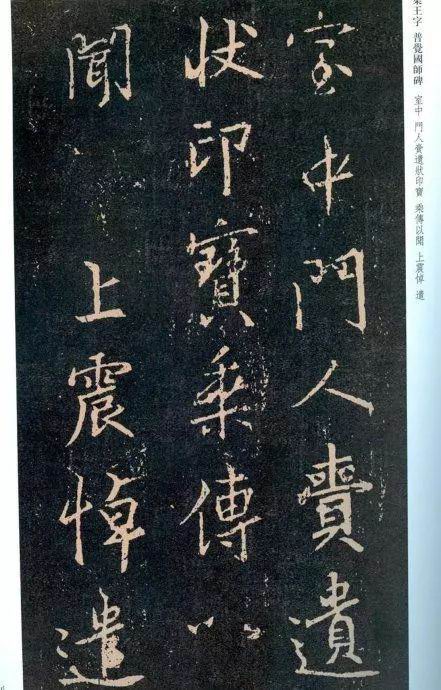 室中門人賫遺
状印寶乗傳以
聞 上震悼遣
集王字 普覺國師碑 室中 門人賫遺狀印寶 乘傳以聞 上震悼 遣